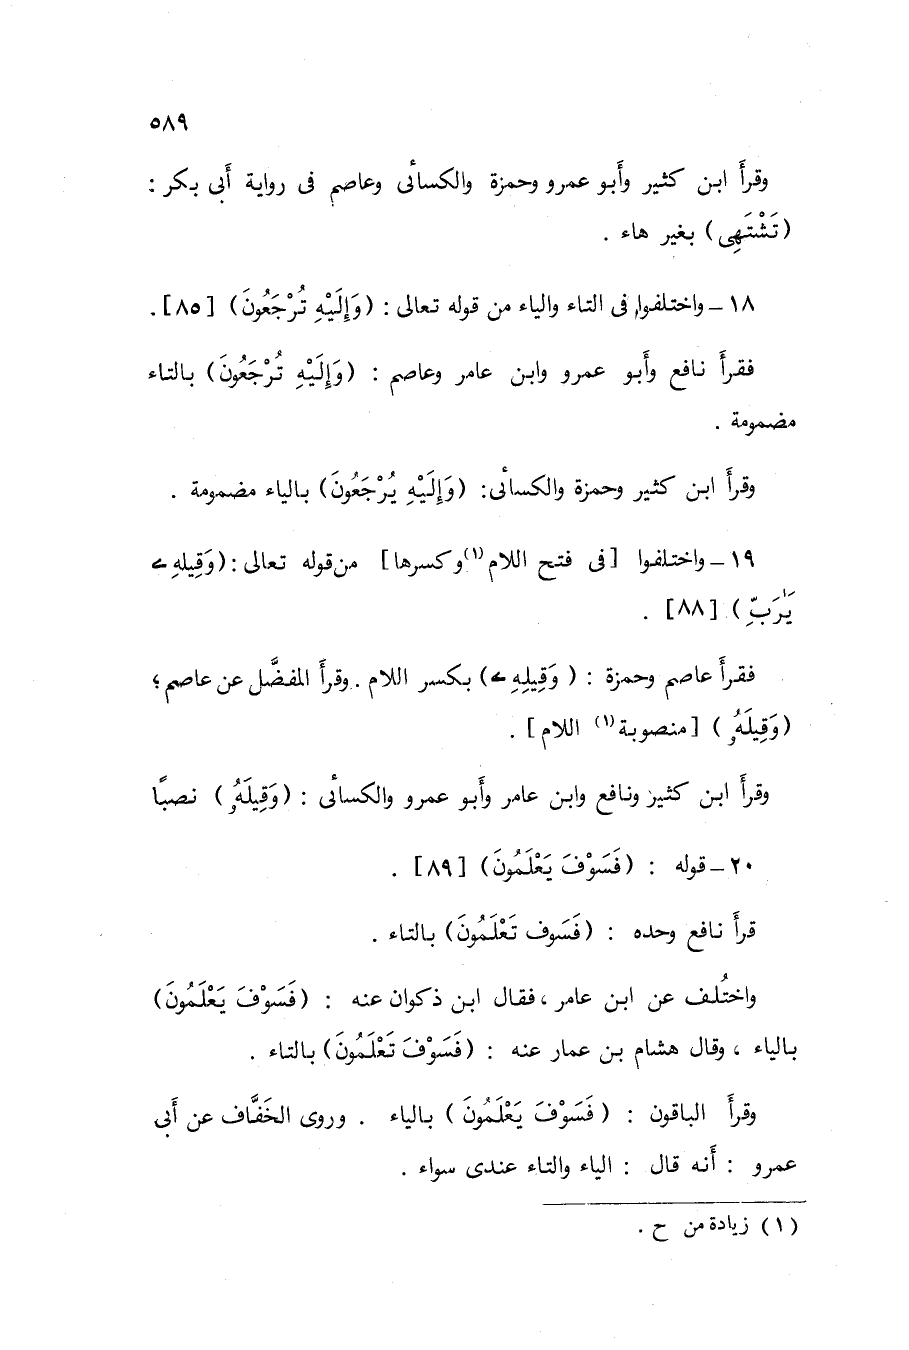 ٥٨٩
وقرأَ ابن كثير وأَبو عمرو وحمزة والكسائى وعاصم فى رواية أَبى بكر :
(تَشْتَهِى) بغير هاء .
١٨ – واختلفوا فى التاء والياء من قوله تعالى : (وَإِلَيْهِ تُرْجَعُونَ) [٨٥] .
فقرأَ نافع وأَبو عمرو وابن عامر وعاصم : (وَإِلَيْهِ تُرْجَعُونَ) بالتاء
مضمومة .
وقرأَ ابن كثير وحمزة والكسائى: (وَإِلَيْهِ يُرْجَعُونَ) بالياء مضمومة .
١٩ – واختلفوا [فى فتح اللام(١) وكسرها] من قوله تعالى : (وَقِيلهِ ے
يَٰرَبِّ) [٨٨] .
فقرأَ عاصم وحمزة : (وَقِيلِهِ ے) بكسر اللام . وقرأَ المفضَّل عن عاصم ؛
(وَقِيلَهُۥ) [منصوبة(١) اللام] .
وقرأَ ابن كثير ونافع وابن عامر وأَبو عمرو والكسائى : (وَقِيلَهُۥ) نصبًا
٢٠ – قوله : (فَسَوْفَ يَعْلَمُونَ) [٨٩] .
قرأَ نافع وحده : (فَسَوف تَعْلَمُونَ) بالتاء .
واختُلف عن ابن عامر ، فقال ابن ذكوان عنه : (فَسَوْفَ يَعْلَمُونَ)
بالياء ، وقال هشام بن عمار عنه : (فَسَوْفَ تَعْلَمُونَ) بالتاء .
وقرأَ الباقون : (فَسَوْفَ يَعْلَمُونَ) بالياء . وروى الخَفَّاف عن أَبى
عمرو : أَنه قال : الياء والتاء عندى سواء .
(١) زيادة من ح .